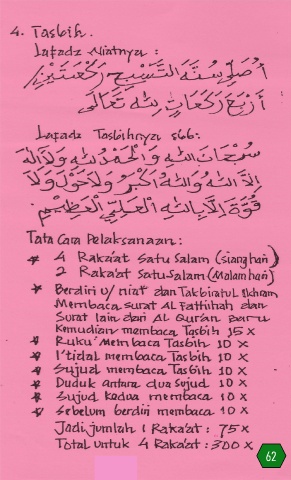 4. Tasbih.
Lafadz Niatnya :
أُصَلِّى سُنَّةَ التَّسْبِيْحِ رَكْعَتَيْنِ/
أَرْبَعَ رَكَعَاتٍ لِلّٰهِ تَعَالَى
Lafadz Tasbihnya sbb:
سُبْحَانَ اللهِ وَالْحَمْدُ لِلّٰهِ وَلَا اِلٰهَ
اِلَّا اللهُ وَاللهُ اَكْبَرُ وَلَا حَوْلَ وَلَا
قُوَّةَ اِلَّا بِاللهِ الْعَلِيِّ الْعَظِيْمِ.
Tata Cara Pelaksanaan:
* 4 Raka'at Satu Salam (Siang hari)
2 Raka'at Satu-Salam (Malam hari)
* Berdiri u/ niat dan Takbiratul Ikhram
Membaca surat AL Fatihah dan
Surat lain dari Al Qur'an baru
Kemudian membaca Tasbih 15 x
* Ruku' Membaca Tasbih 10 x
* I'tidal membaca Tasbih 10 x
* Sujud membaca Tasbih 10 x
* Duduk antara dua sujud 10 x
* Sujud Kedua membaca 10 x
* Sebelum berdiri membaca 10 x
Jadi jumlah 1 Raka'at : 75 x
Total untuk 4 Raka'at : 300 x
62